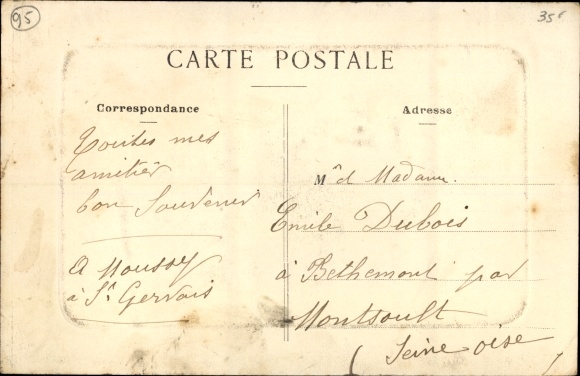 95
35 €
CARTE POSTALE
Correspondance
Adresse
Toutes mes
amitiés
bon Souvenir
A Moussy
à St Gervais
Md Madame
Emile Dubois
à Bethemont par
Montsoult
(Seine oise